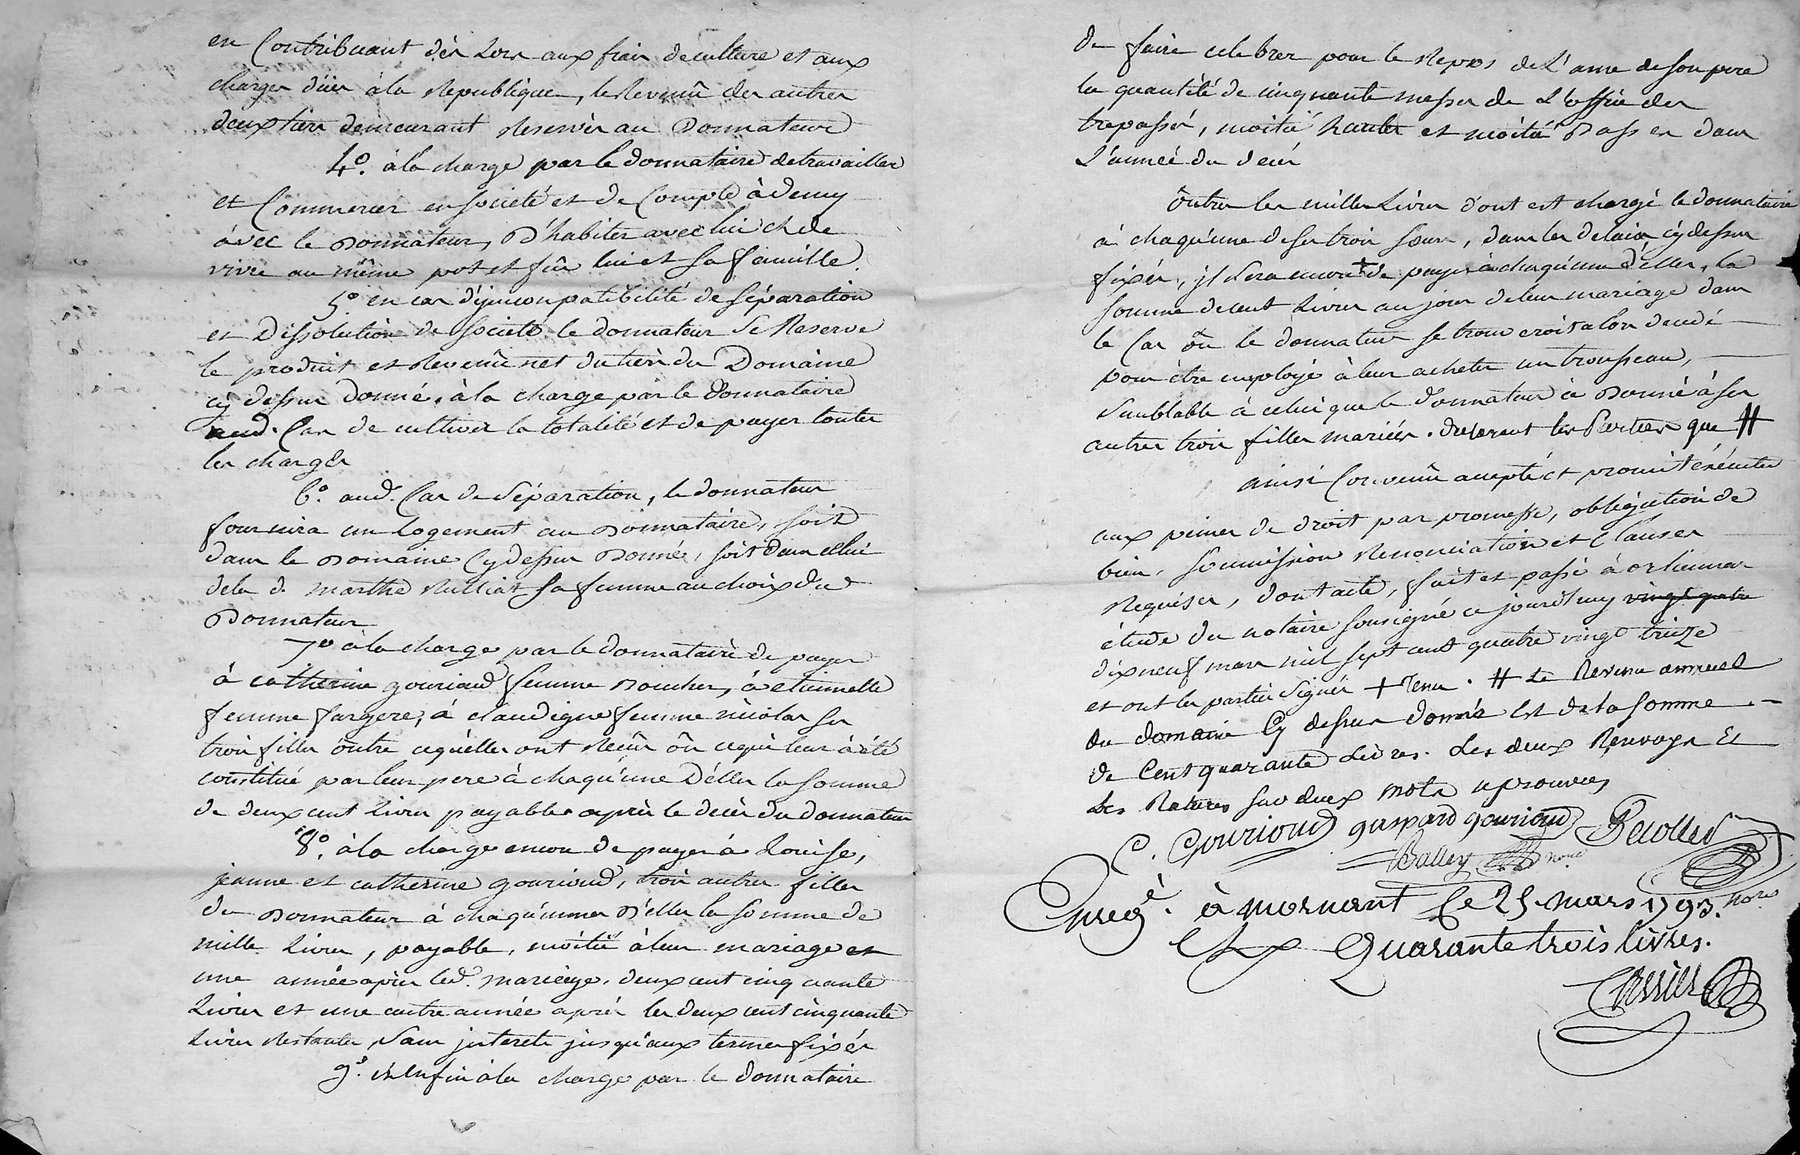 en Contribuant dès Lors aux frais de culture et aux
charges düès à la Republique, le Revenü des autres
deux tiers demeurant Reservés au Donnateur
4º. à la charge par le donnataire de travailler
et Commercer en societé et de Compte à demy
avec le Donnateur, D'habiter avec lui et de
vivre au même pot et feu lui et sa famille.
5º en cas d'jncompatibilité de séparation
et Dissolution de societé le donnateur se Reserve
le produit et Revenü net du tiers du Domaine
cy dessus donné, à la charge par le donnataire
aud. Cas de cultiver la totalité et de payer toutes
les charges
6º. aud. Cas de séparation, le donnateur
fournira un logement au Donnataire, soit
dans le Domaine Cydessus Donné, soit dans celui
de la d. marthe Rulliat sa femme au choix du
Donnateur
7º à la charge par le donnataire de payer
à catherine gourioud femme Boucher, à etiennette
femme fargere, à claudigne femme nicolas ses
trois filles outre cequ'elles ont Recüe ôu cequi leur à été
constitué par leur pere à chaqu'une D'elles la somme
de deux cent Livres payables après le decès du donnateur
8º. à la charge encore de payer à Louise,
jeanne et catherine gourioud, trois autres filles
du Donnateur à chaqu'unnes D'elles la somme de
mille Livres, payable, moitié à leur mariage et
une année après led. mariage, deux cent cinquante
Livres et une autre année après les deux cent cinquante
Livres Restantes, sans jnterets jusqu'aux termes fixés
9º. et enfin à la charge par le donnataire
de faire celebrer pour le Repos de L'ame de son pere
la quantité de cinquante messes de L'office des
trepassés, moitié hautes et moitié Basses dans
L'année du decés
ôutre les milles Livres d'ont est chargé le donnataire
à chaqu'une de ses trois sœurs, dans les delais cydessus
fixés, jl sera encore + de payer à chaqu'une d'elles, la
somme de cent Livres au jour de leur mariage dans
le Cas ôu le donnateur se trouveroit alors decedé
pour être employé à leur acheter un trousseau,
semblable à celui que le donnateur à Donné à ses
autres trois filles mariées. declarent les Parties que #
ainsi Convenü accepté et promit éxécuter
aux peines de droit par promesse, obligation de
bien, soumission Renonciation et Clauses
Requises, dont acte, fait et passé à orliennas
étude du notaire soussigné ce jourd'huy vingt quatre
dix neuf mars mil sept cent quatre vingt treize
et ont les parties signés + Tenu. # Le Revenu annuel
du domaine Cy dessus donné Est de la somme
de Cent quarante Livres. Les deux Renvoys Et
Les Ratures sur deux mots aprouvés
C. Gourioud gaspard gourioud
Balley noré
Enregé. à mornant le 25 mars 1793.
Quarante trois livres.